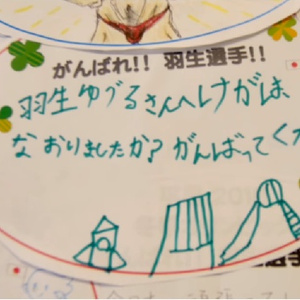 がんばれ!! 羽生選手!!
羽生ゆづるさんへけがは
なおりましたか?がんばってくだ